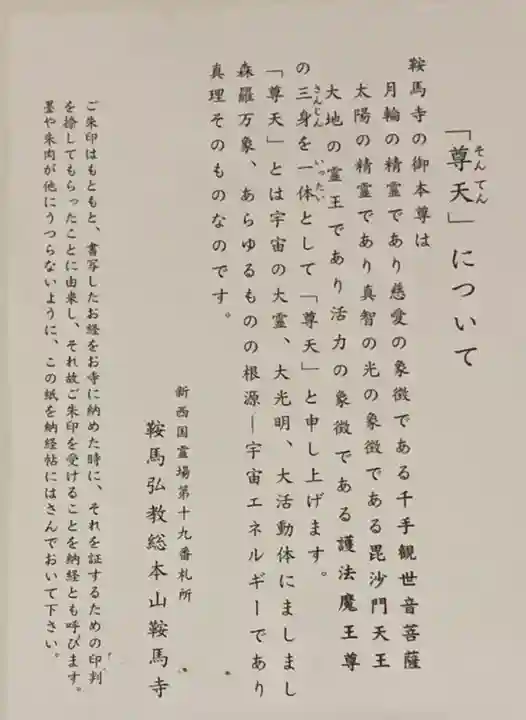 「尊天」について
鞍馬寺の御本尊は
月輪の精霊であり慈愛の象徴である千手観世音菩薩
太陽の精霊であり真智の光の象徴である毘沙門天王
大地の霊王であり活力の象徴である護法魔王尊
の三身を一体として「尊天」と申し上げます。
「尊天」とは宇宙の大霊、大光明、大活動体にましまし
森羅万象、あらゆるものの根源―宇宙エネルギーであり
真理そのものなのです。
新西国霊場第十九番札所
鞍馬弘教総本山鞍馬寺
ご朱印はもともと、書写したお経をお寺に納めた時に、それを証するための印判
を捺してもらったことに由来し、それ故ご朱印を受けることを納経とも呼びます。
墨や朱肉が他にうつらないように、この紙を納経帖にはさんでおいて下さい。